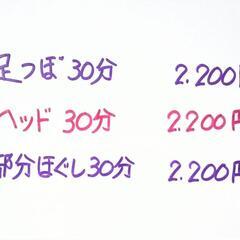 足つぼ30分 2.200円
ヘッド 30分 2.200円
部分ほぐし30分 2.200円